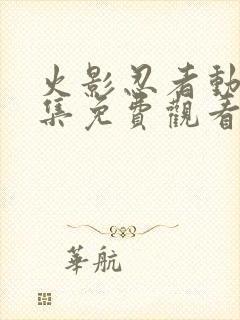 火影忍者動
集免費觀看
華航